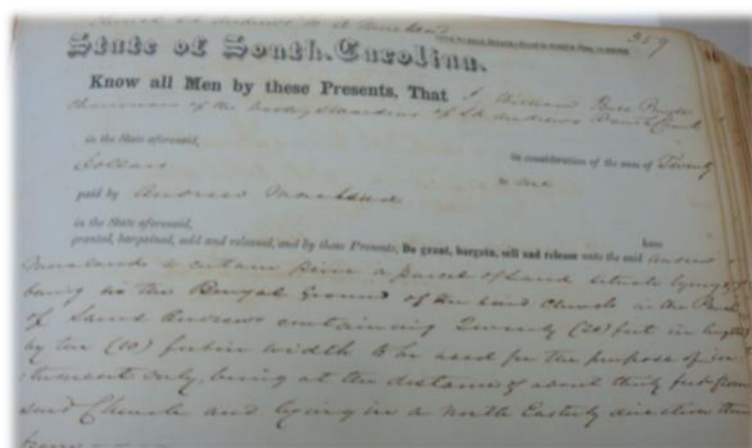 Church St Andrews to A
359
State of South-Carolina.
Know all Men by these Presents, That I William Bull
Chairman of the of St Andrews Parish
in the State aforesaid,
in consideration of the sum of Twenty
Dollars
to me
paid by Andrew
in the State aforesaid,
have
granted, bargained, sold and released, and by these Presents, Do grant, bargain, sell and release unto the said Andrew
a certain piece a parcel of Land situate lying &
being in the Ground of the said Church in the
of Saint Andrews containing Twenty (20) feet in
by ten (10) feet in width to be used for the purpose of in
terment only, being at the distance of about thirty feet from
said Church and lying in a North Easterly direction there
from